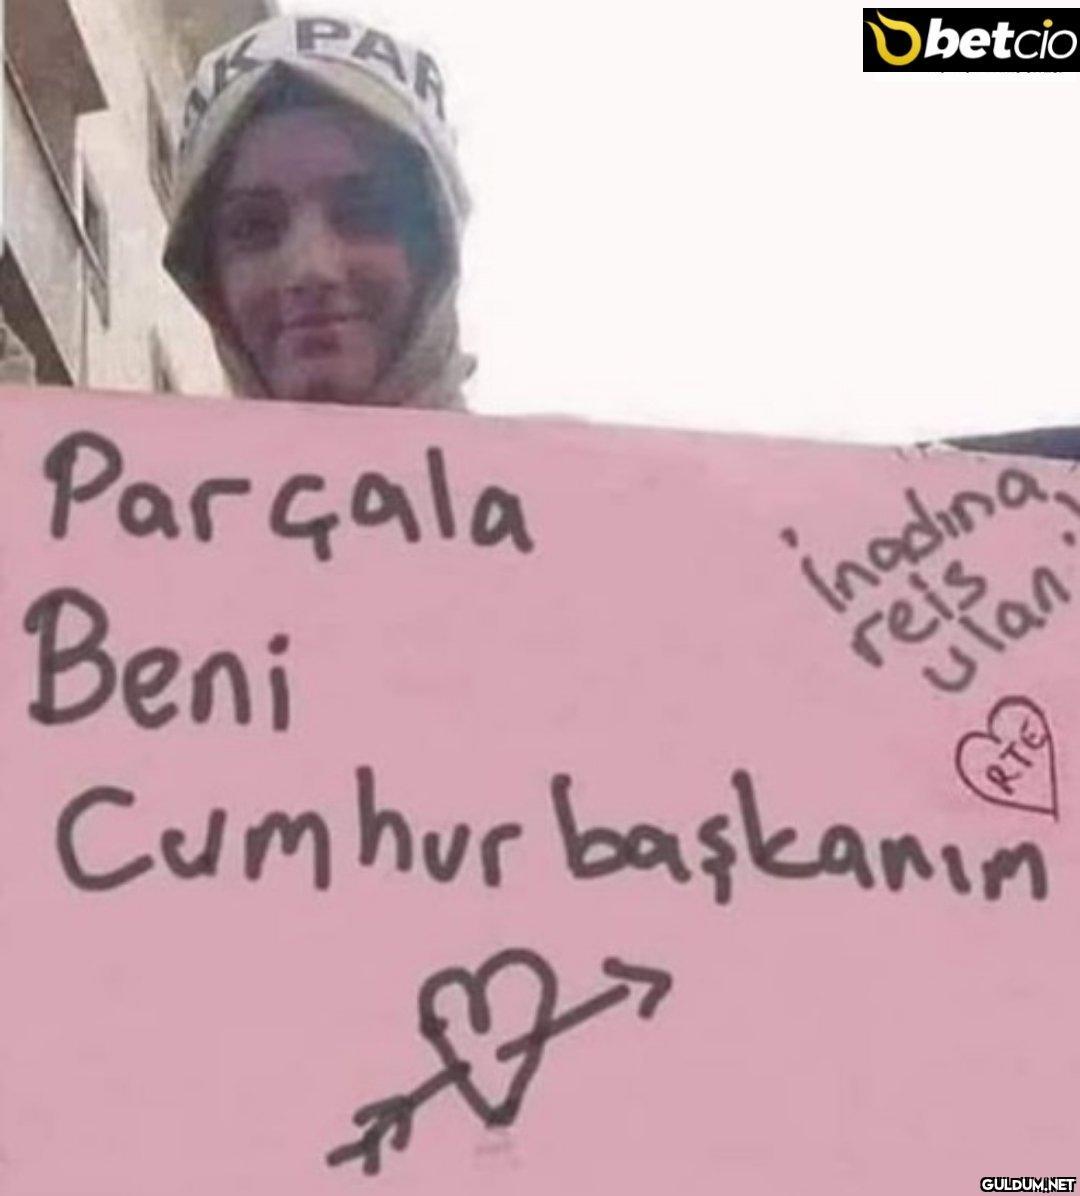 betcio
AK PAR
Parçala
Beni
Cumhurbaşkanım
inadına,
reis
ulan!
RTE
GULDUM.NET